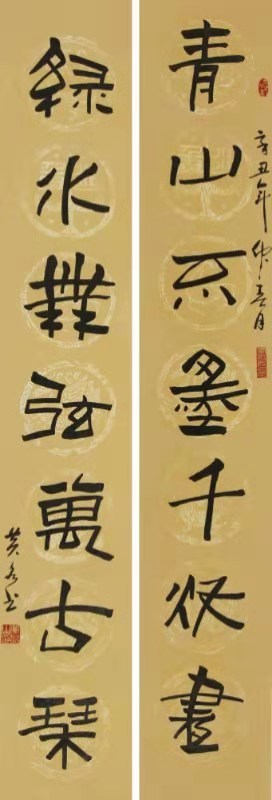 辛丑年仲春月
青山不墨千秋畫
綠水無弦萬古琴
黄书